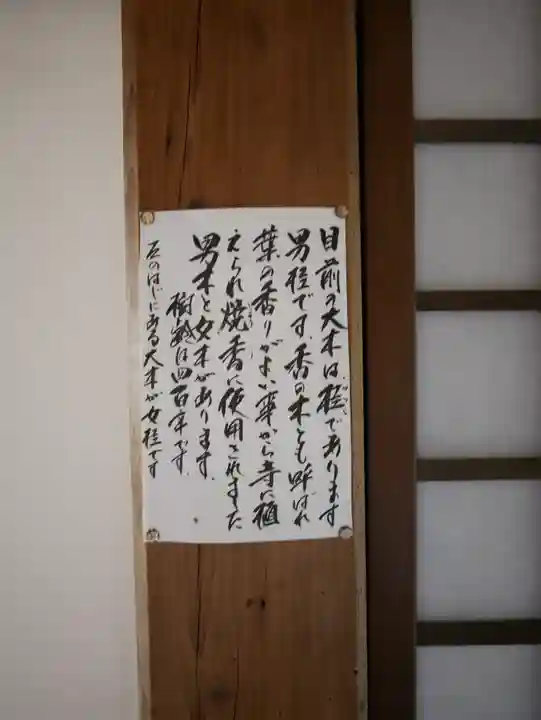 目前の大木は桂であります
男桂です、香の木とも呼ばれ
葉の香りがよい事から寺に植
えられ焼香に使用されました
男木と女木があります。
樹齢は四百年です。
左のはじにある大木が女桂です